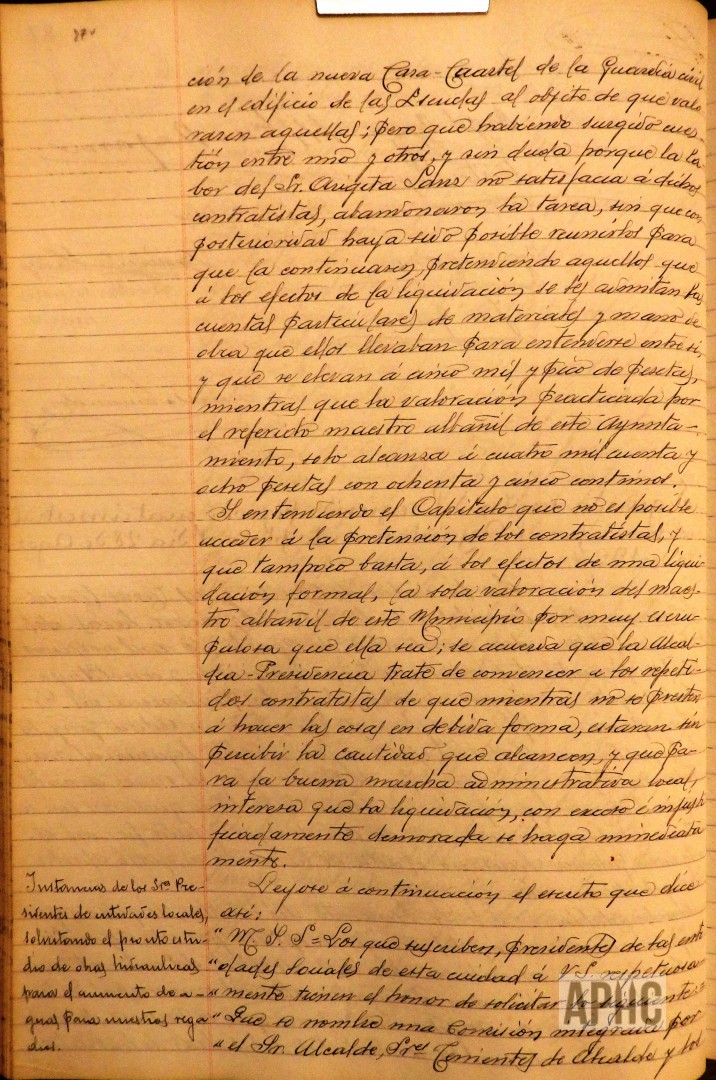 87v
ción de la nueva Casa-Cuartel de la Guardia civil
en el edificio de las Escuelas al objeto de que valo
rasen aquellas; pero que habiendo surgido cues-
tión entre uno y otros, y sin duda porque la la-
bor del Sr. Arigita Sanz no satisfacia á dichos
contratistas, abandonaron la tarea, sin que con
posterioridad haya sido posible reunirlos para
que la continuasen, pretendiendo aquellos que
á los efectos de la liquidación se les admitan las
cuentas particulares de materiales y mano de
obra que ellos llevaban para entenderse entre si,
y que se elevan á cinco mil y pico de pesetas,
mientras que la valoración practicada por
el referido maestro albañil de este Ayunta-
miento, solo alcanza á cuatro mil cuenta y
ocho pesetas con ochenta y cinco contimos.
Y entendiendo el Capitulo que no es posible
acceder á la pretensión de los contratistas, y
que tampoco basta, á los efectos de una liqui-
dación formal, la sola valoración del maes-
tro albañil de este Municipio por muy escru-
pulosa que ella sea; se acuerda que la Alcal-
dia-Presidencia trate de convencer á los repeti-
dos contratistas de que mientras no se presten
á hacer las cosas en debida forma, estaran sin
percibir la cantidad que alcancen, y que pa-
ra la buena marcha administrativa local,
interesa que la liquidación, con exceso é injusti
ficadamente demorada se haga inmediata
mente.
Leyose á continuación el escrito que dice
asi:
Instancias de los Sres Pre-
sidentes de entidades locales,
solicitando el pronto estu-
dio de obras hidraulicas
para el aumento de a-
guas para nuestros rega
dios.
" M. I. Sr = Los que suscriben, presidentes de las enti
"dades sociales de esta ciudad á V.S. respetuosa
" mente tienen el honor de solicitar lo siguiente =
" Que se nombre una Comisión integrada por
" el Sr. Alcalde, Sres Tenientes de Alcalde y los
APHC